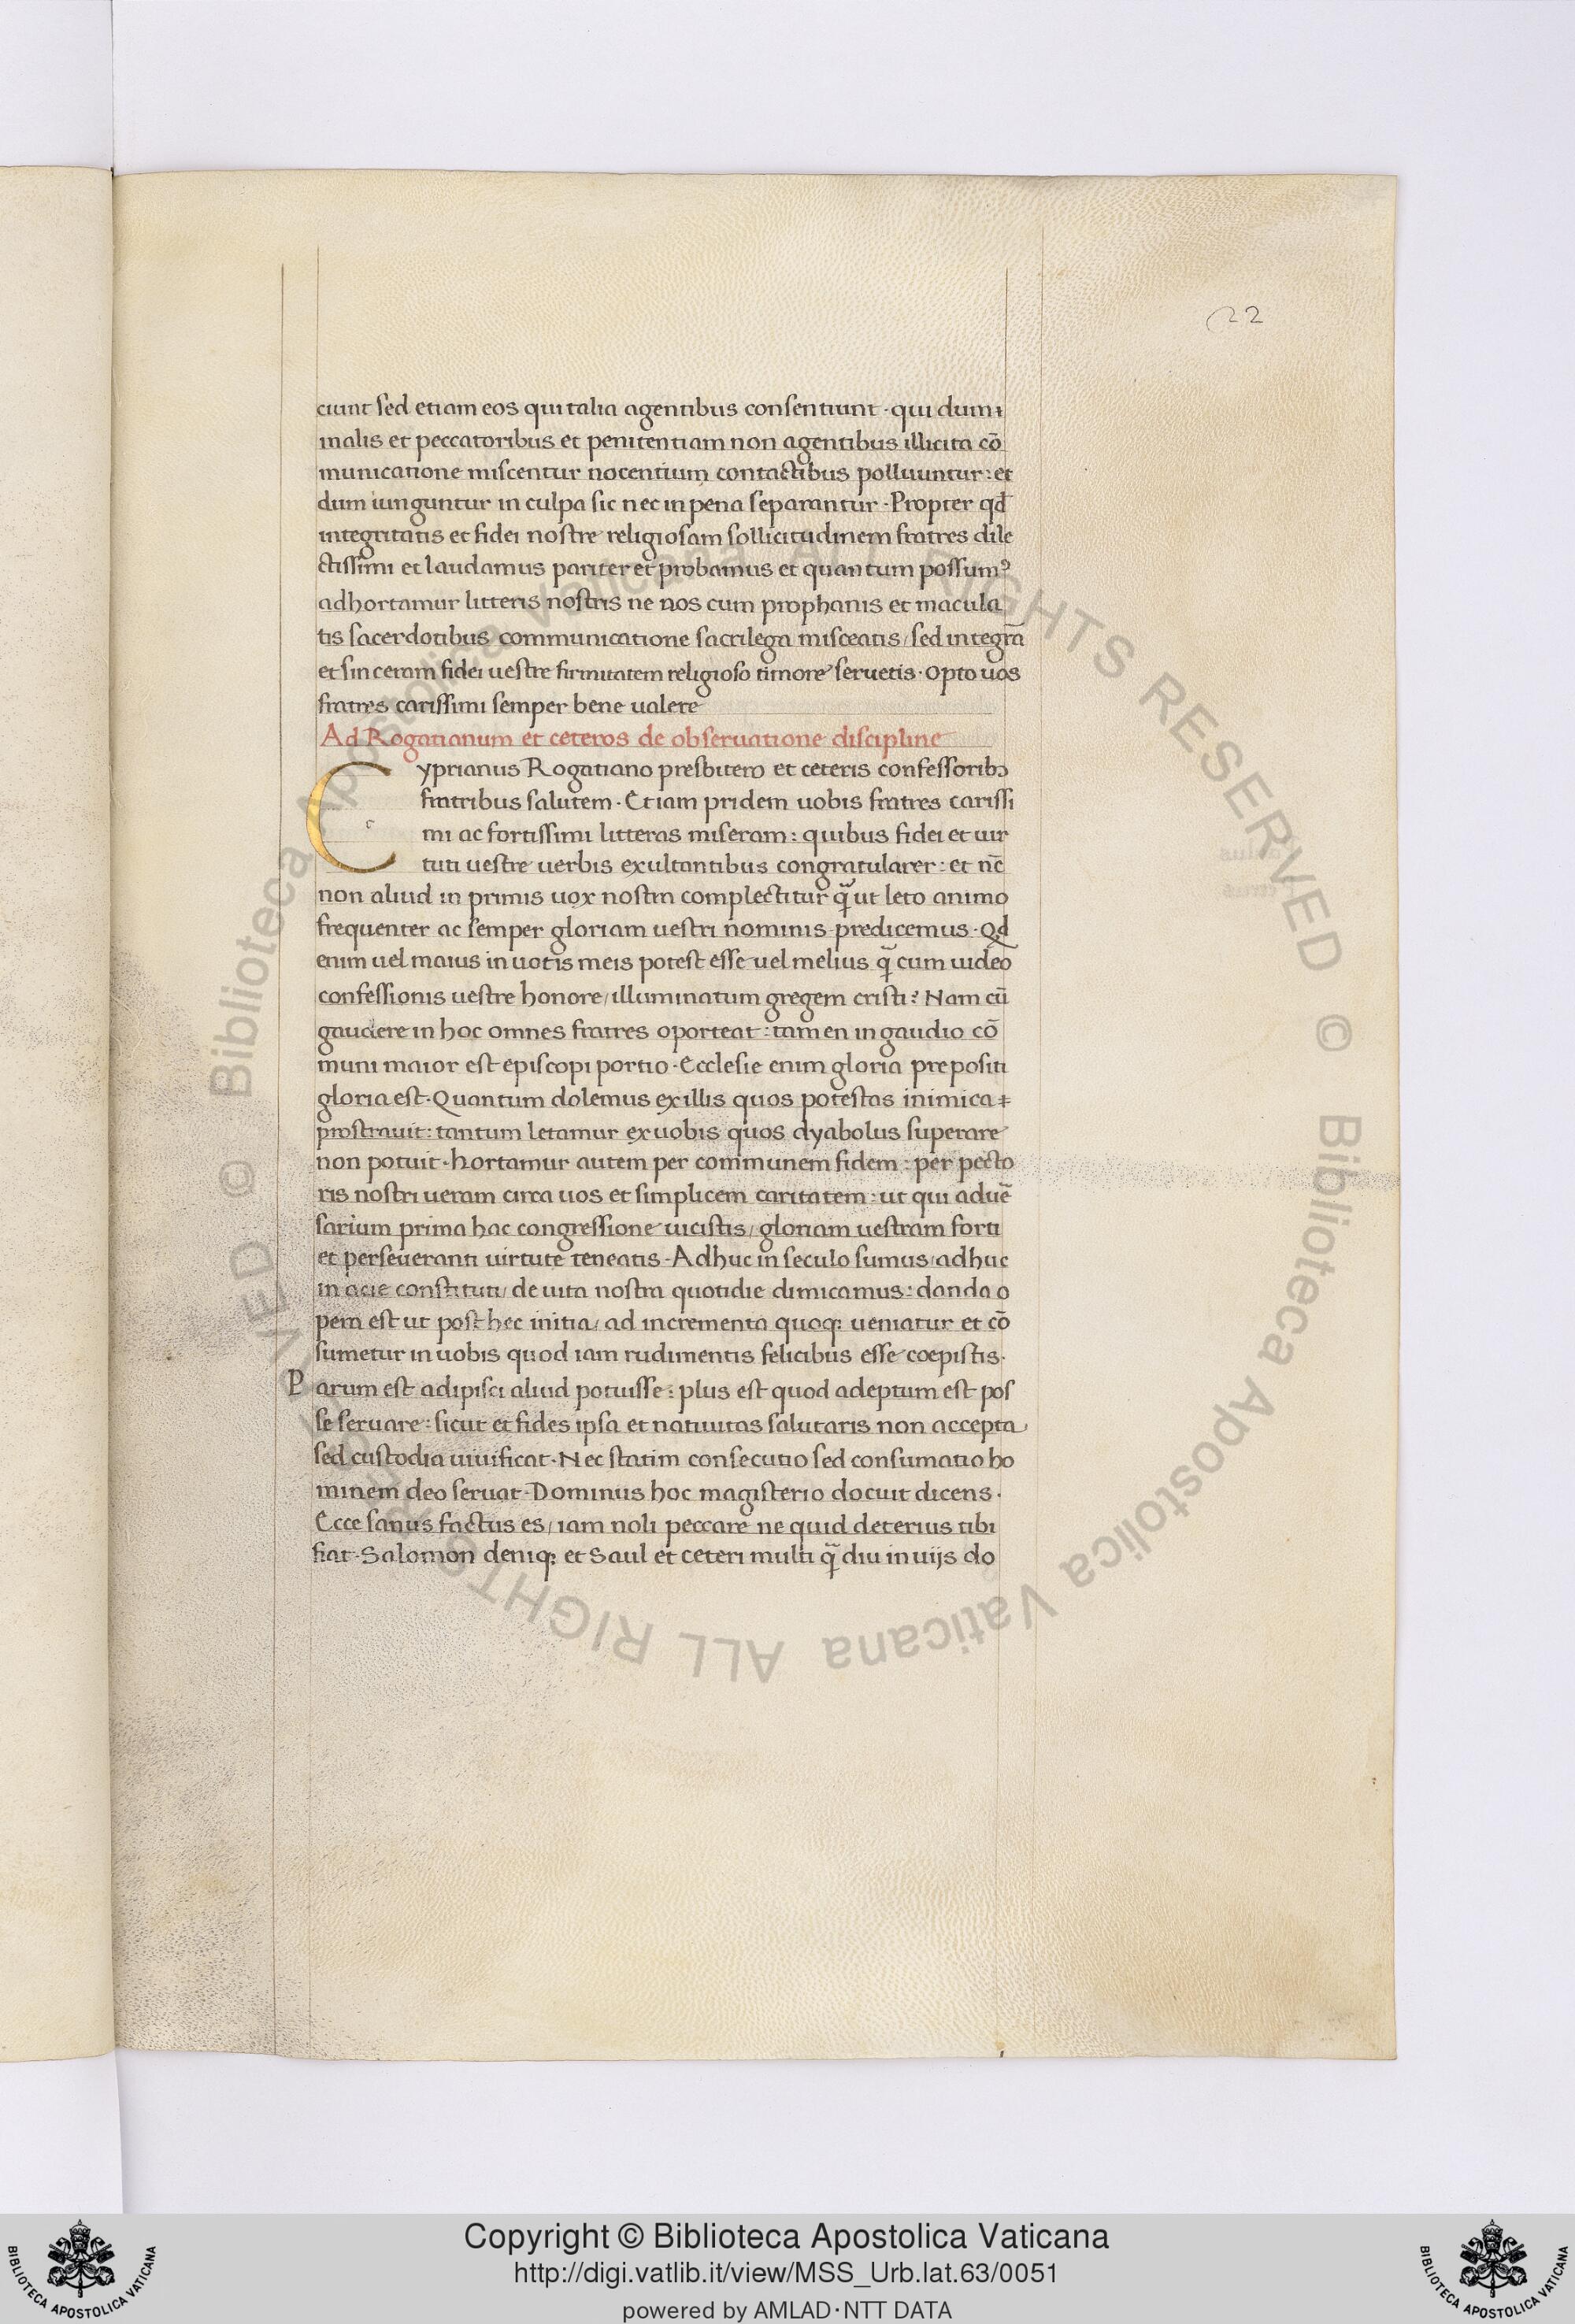 22
ciunt sed etiam eos qui talia agentibus consentiunt · qui dum
malis et peccatoribus et penitentiam non agentibus illicita cō
municatione miscentur nocentium contactibus polluuntur : et
dum iunguntur in culpa sic nec in pena separantur · Propter qđ
integritatis et fidei nostre religiosam sollicitudinem fratres dile
ctissimi et laudamus pariter et probamus et quantum possumꝰ
adhortamur litteris nostris ne nos cum prophanis et macula
tis sacerdotibus communicatione sacrilega misceatis / sed integrā
et sinceram fidei uestre firmitatem religioso timore seruetis · Opto uos
fratres carissimi semper bene ualere
Ad Rogatianum et ceteros de obseruatione discipline
Cyprianus Rogatiano presbitero et ceteris confessoribꝫ
fratribus salutem · Etiam pridem uobis fratres carissi
mi ac fortissimi litteras miseram : quibus fidei et uir
tuti uestre uerbis exultantibus congratularer : et nc̄
non aliud in primis uox nostra complectitur q̄ ut leto animo
frequenter ac semper gloriam uestri nominis predicemus · Qd
enim uel maius in uotis meis potest esse uel melius q̄ cum uideo
confessionis uestre honore / illuminatum gregem cristi ? Nam cū
gaudere in hoc omnes fratres oporteat : tamen in gaudio cō
muni maior est episcopi portio · Ecclesie enim gloria prepositi
gloria est · Quantum dolemus ex illis quos potestas inimica
prostrauit : tantum letamur ex uobis quos dyabolus superare
non potuit · hortamur autem per communem fidem : per pecto
ris nostri ueram circa uos et simplicem caritatem : ut qui aduē
sarium prima hac congressione uicistis / gloriam uestram forti
et perseueranti uirtute teneatis · Adhuc in seculo sumus / adhuc
in acie constituti / de uita nostra quotidie dimicamus : danda o
pera est ut post hec initia / ad incrementa quoqꝫ ueniatur et cō
sumetur in uobis quod iam rudimentis felicibus esse coepistis ·
Parum est adipisci aliud potuisse : plus est quod adeptum est pos
se seruare : sicut et fides ipsa et natiuitas salutaris non accepta
sed custodia uiuificat · Nec statim consecutio sed consumatio ho
minem deo seruat · Dominus hoc magisterio docuit dicens ·
Ecce sanus factus es / iam noli peccare ne quid deterius tibi
fiat · Salomon deniqꝫ et Saul et ceteri multi q̄ diu in uijs do
© Biblioteca Apostolica Vaticana ALL RIGHTS RESERVED © Biblioteca Apostolica Vaticana ALL RIGHTS RESERVED
Copyright © Biblioteca Apostolica Vaticana
http://digi.vatlib.it/view/MSS_Urb.lat.63/0051
powered by AMLAD·NTT DATA
BIBLIOTECA APOSTOLICA VATICANA
BIBLIOTECA APOSTOLICA VATICANA